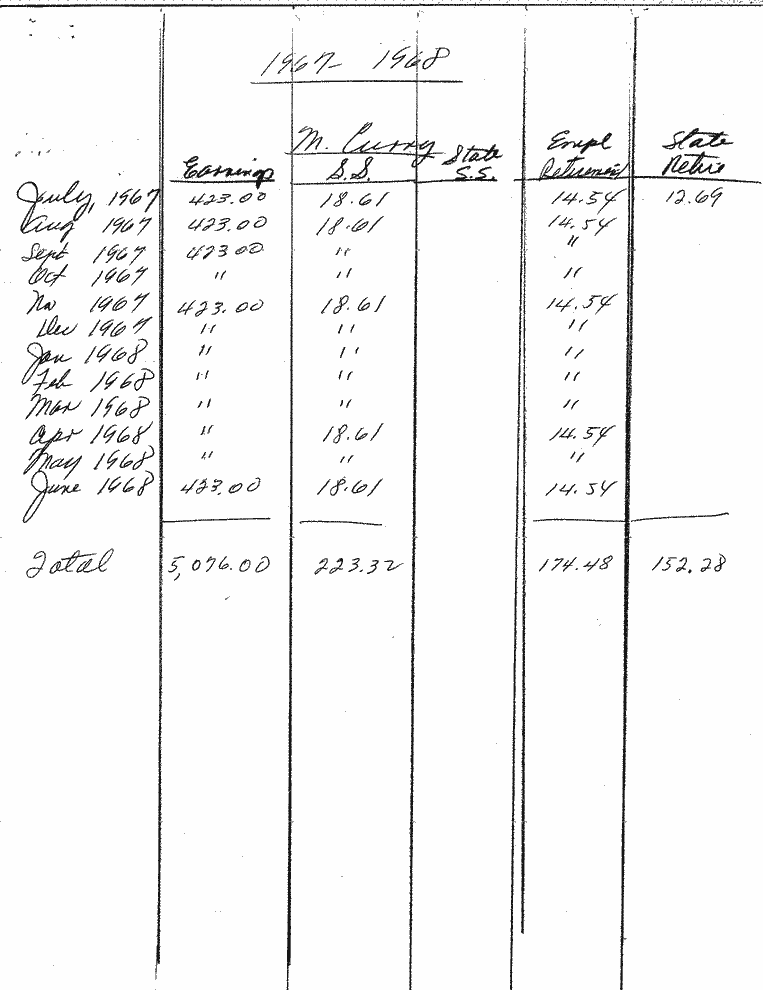 1967- 1968
M. Curry
Earnings S.S. State S.S. Empl Retirement State Retire
July, 1967 423.00 18.61 14.54 12.69
Aug 1967 423.00 18.61 14.54
Sept 1967 423 00 " "
Oct 1967 " " "
No 1967 423.00 18.61 14.54
Dec 1967 " " "
Jan 1968 " " "
Feb 1968 " " "
Mar 1968 " " "
Apr 1968 " 18.61 14.54
May 1968 " " "
June 1968 423.00 18.61 14.54
Total 5,076.00 223.32 174.48 152.28